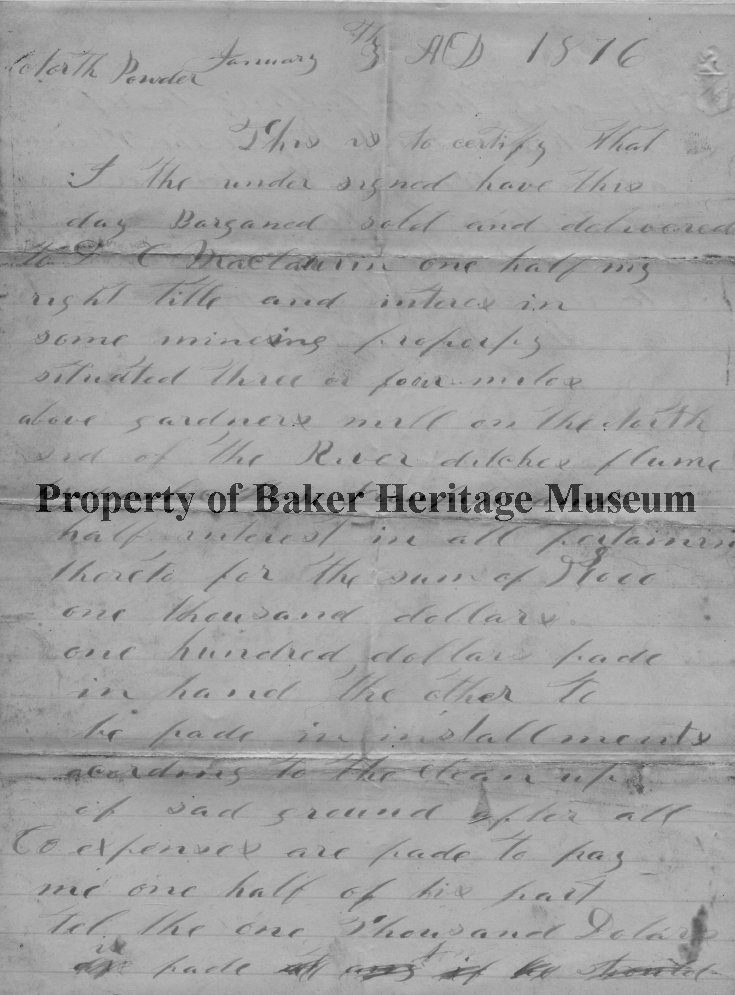 North Powder January 3th AD 1876
This is to certify that
I the under signed have this
day Barganed sold and delivered
to C Maclaurin one half my
right title and interes in
some mineing property
situated three or four miles
above gardners mill on the North
sid of the River ditches flume
Property of Baker Heritage Museum
half interest in all pertainin
thereto for the sum of $1000
one thousand dollars.
one hundred dollars pade
in hand the other to
be pade in installments
acording to the clean up
of sad ground after all
Co expenses are pade to pay
me one half of his part
tel the one Thousand Dolars
is pade